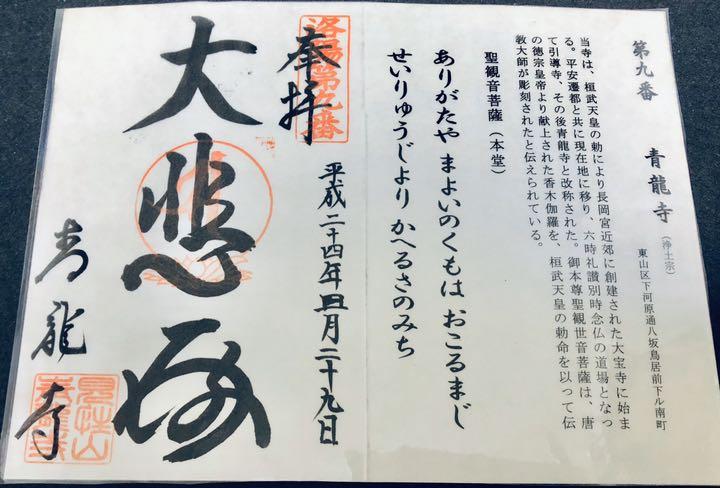 第九番　青龍寺（浄土宗）
東山区下河原通八坂鳥居前下ル南町
当寺は、桓武天皇の勅により長岡宮近郊に創建された大宝寺に始ま
る。平安遷都と共に現在地に移り、六時礼讃別時念仏の道場となっ
て引導寺、その後青龍寺と改称された。御本尊聖観世音菩薩は、唐
の徳宗皇帝より献上された香木伽羅を、桓武天皇の勅命を以って伝
教大師が彫刻されたと伝えられている。
聖観音菩薩（本堂）
ありがたや まよいのくもは おこるまじ
せいりゅうじより かへるさのみち
洛陽第九番
奉拝
平成二十四年四月二十九日
大悲殿
青龍寺
見性山